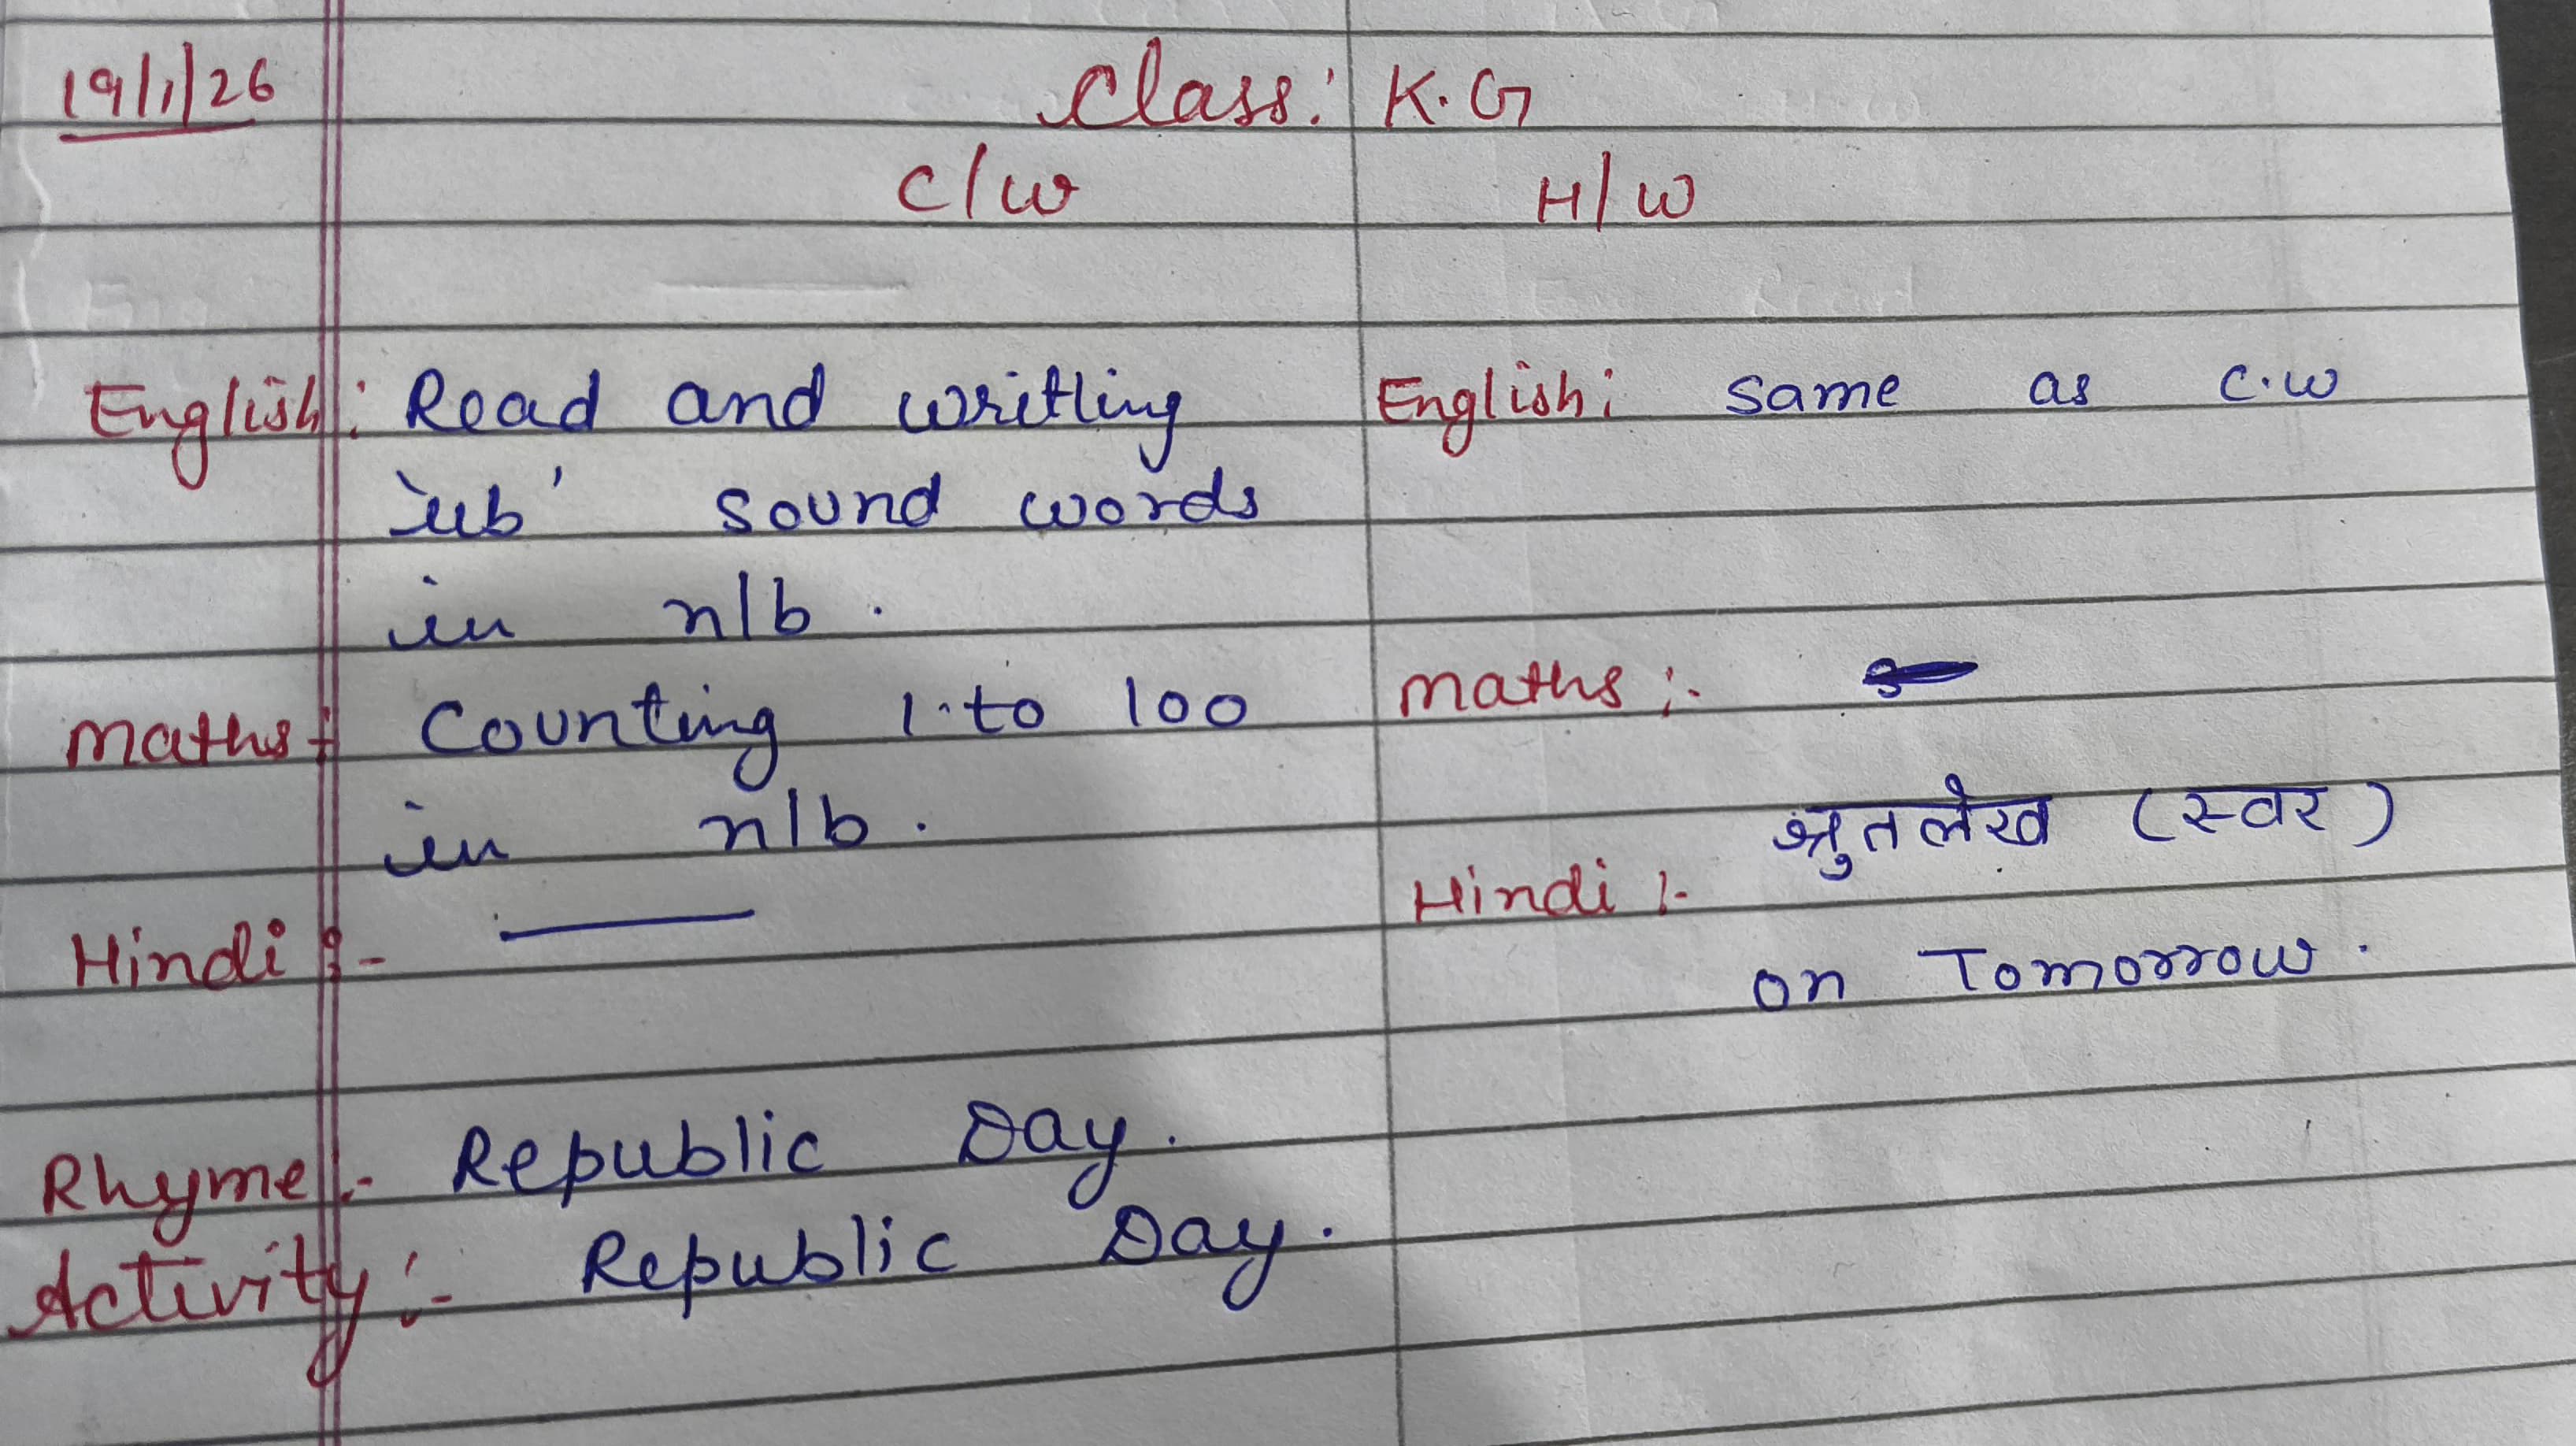 19/1/26
Class: K.G
C/W
H/W
English: Read and writling
'ub' sound words
in n/b.
Maths:- Counting 1 to 100
in n/b.
Hindi :-
Rhyme :- Republic Day.
Activity :- Republic Day.
English: Same as C.W
Maths :-
Hindi :- श्रुतलेख (स्वर)
on Tomorrow.